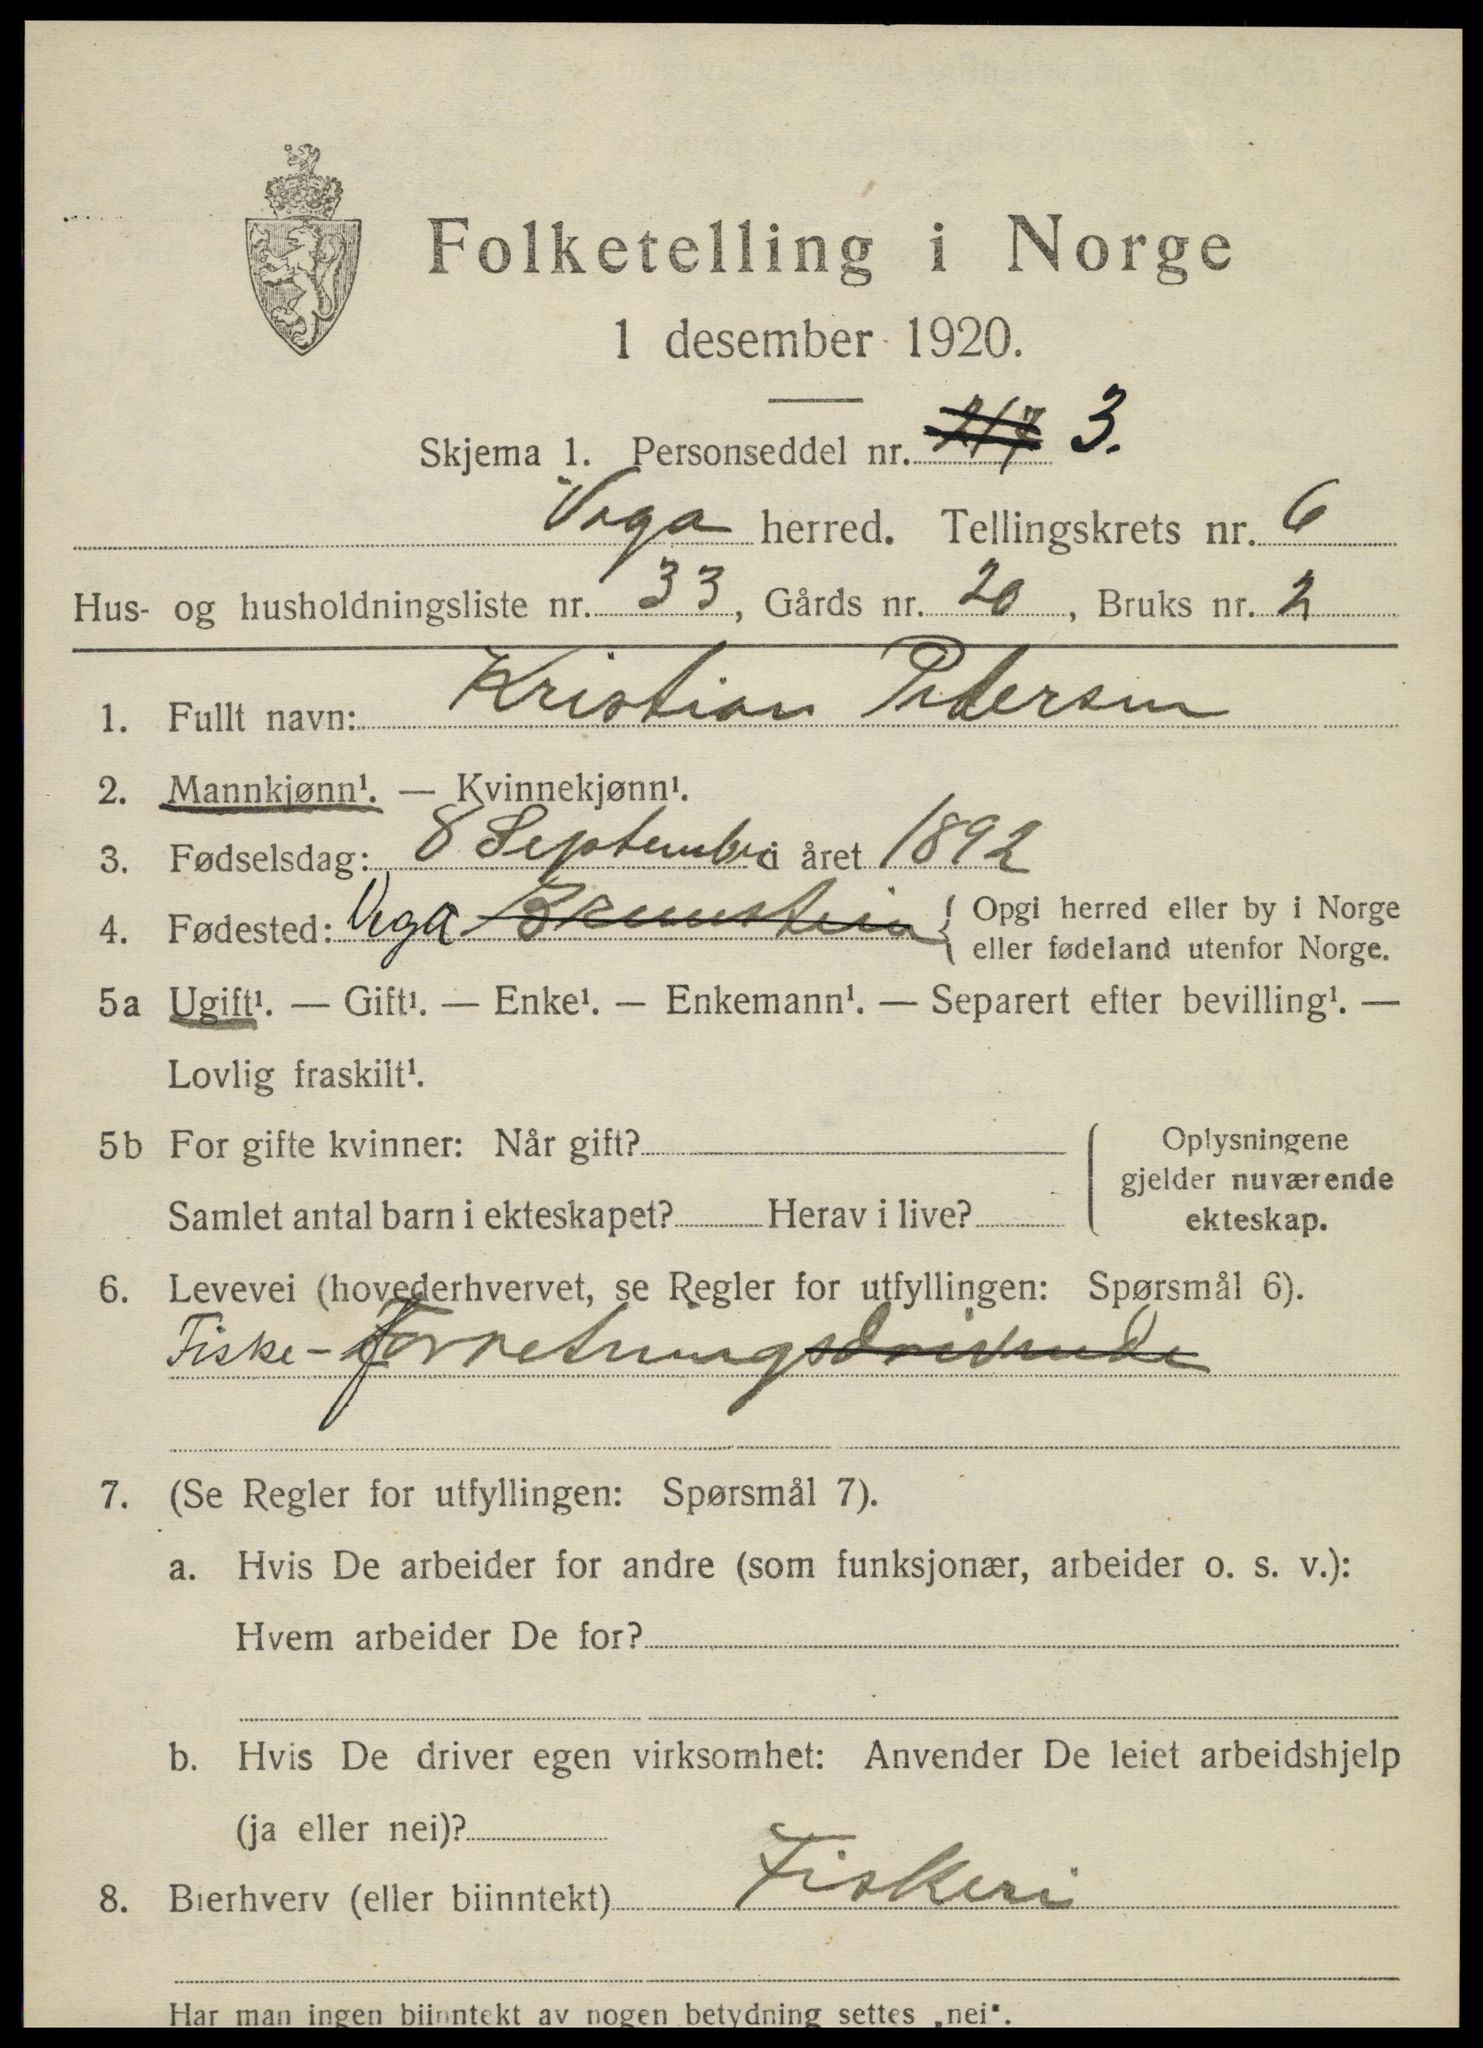 Folketelling i Norge
1 desember 1920.
Skjema 1. Personseddel nr. 3.
Vega herred. Tellingskrets nr. 6
Hus- og husholdningsliste nr. 33, Gårds nr. 20, Bruks nr. 2
1. Fullt navn: Kristian Pedersen
2. Mannkjønn¹. — Kvinnekjønn¹.
3. Fødselsdag: 8 September i året 1892
4. Fødested: Vega { Opgi herred eller by i Norge
eller fødeland utenfor Norge.
5a Ugift¹. — Gift¹. — Enke¹. — Enkemann¹. — Separert efter bevilling¹. —
Lovlig fraskilt¹.
5b For gifte kvinner: Når gift?
Samlet antal barn i ekteskapet? Herav i live?
Oplysningene
gjelder nuværende
ekteskap.
6. Levevei (hovederhvervet, se Regler for utfyllingen: Spørsmål 6).
Fiske-forretningsdrivende
7. (Se Regler for utfyllingen: Spørsmål 7).
a. Hvis De arbeider for andre (som funksjonær, arbeider o. s. v.):
Hvem arbeider De for?
b. Hvis De driver egen virksomhet: Anvender De leiet arbeidshjelp
(ja eller nei)?
8. Bierhverv (eller biinntekt) Fiskeri
Har man ingen biinntekt av nogen betydning settes „nei“.